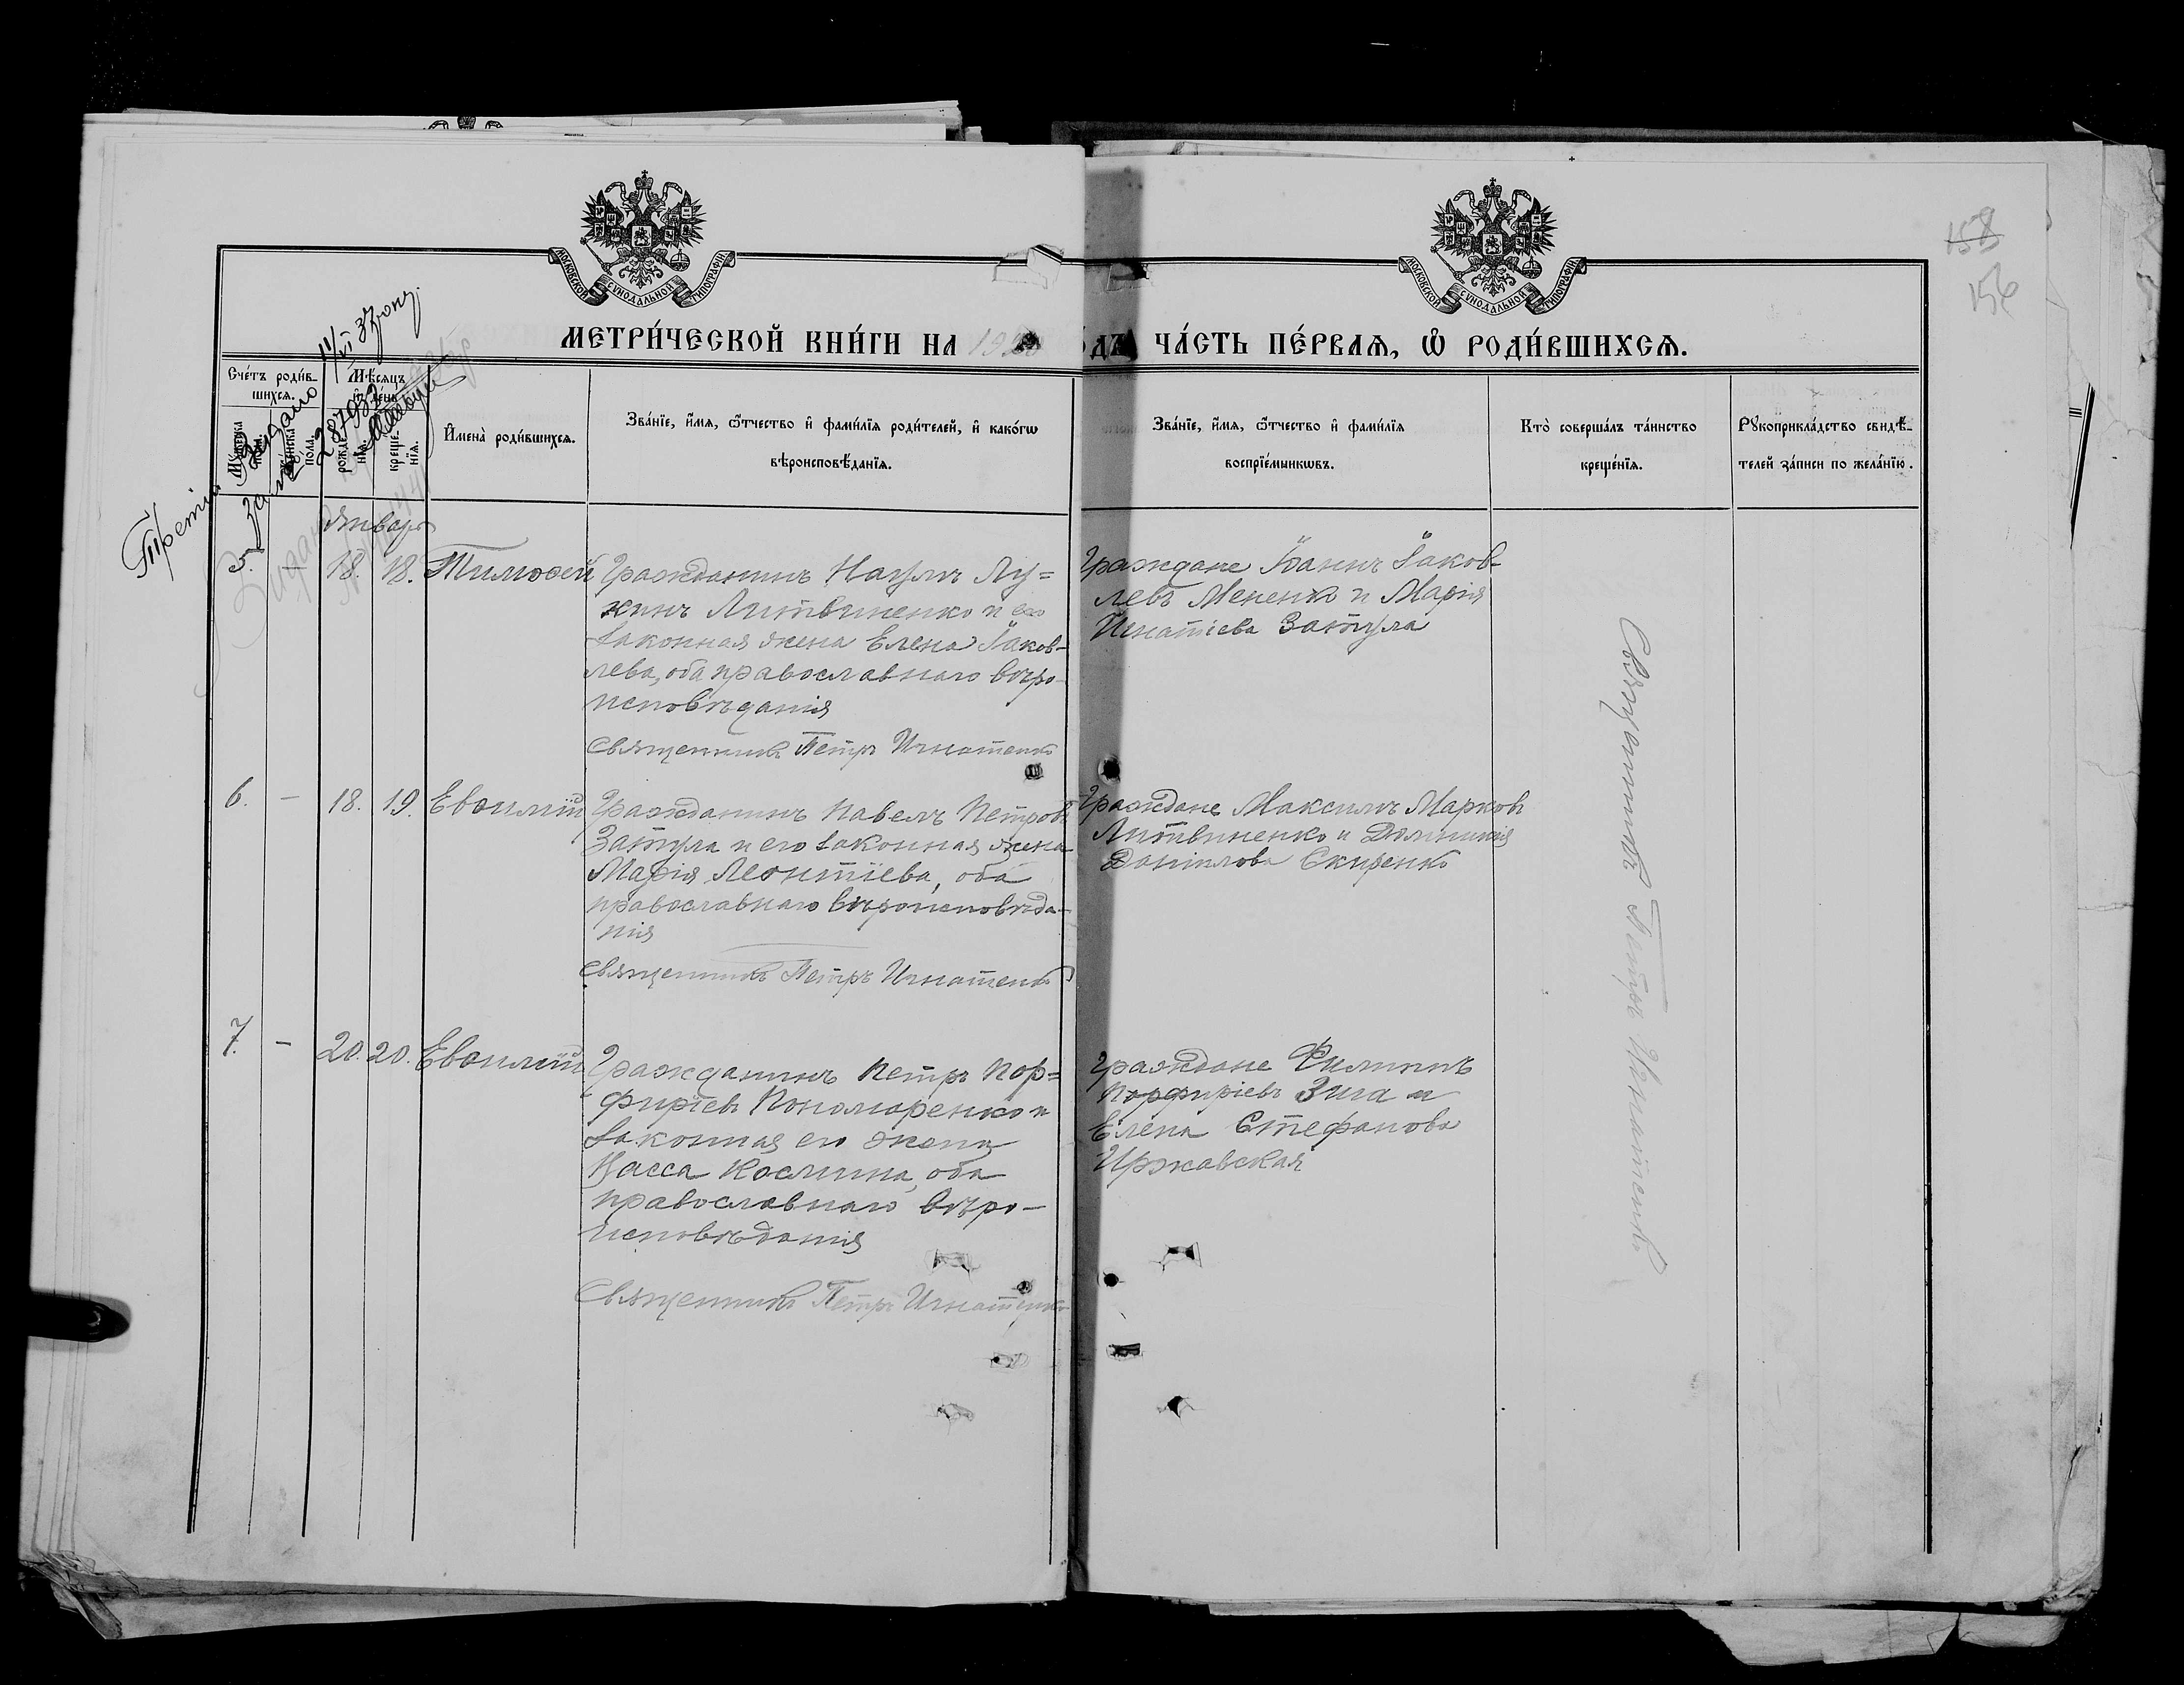 158
156
МОСКОВСКОЙ СѴНОДАЛЬНОЙ ТИПОГРАФІИ
МОСКОВСКОЙ СѴНОДАЛЬНОЙ ТИПОГРАФІИ
МЕТРИ́ЧЕСКОЙ КНИ́ГИ НА 1920
ЧА́СТЬ ПЕ́РВАѦ, Ѽ РОДИ́ВШИХСѦ.
Сче́тъ роди́в-
шихсѧ.
Мѣ́сѧцъ
и҆ де́нь
по́ла.
рожде́-
нїѧ.
креще́-
нїѧ.
И҆мена̀ роди́вшихсѧ.
Зва́нїе, и҆́мѧ, ѻ҆́тчество и҆ фами́лїѧ роди́телей, и҆ како́гѡ
вѣроисповѣ́данїѧ.
Зва́нїе, и҆́мѧ, ѻ҆́тчество и҆ фами́лїѧ
воспрїе́мникѡвъ.
Кто̀ соверша́лъ та́инство
креще́нїѧ.
Рꙋкоприкла́дство свидѣ́-
телей за́писи по жела́нїю.
Третій
Январь
5. — 18. 18. Тимофей
Гражданинъ Наумъ Лу=
кинъ Литвиненко и его
законная жена Елена Яков-
лева, оба православнаго вѣро-
исповѣданія
Священникъ Петръ Игнатенко
Граждане Іоаннъ Яков-
левъ Мененко и Марія
Игнатіева Затула
6. — 18. 19. Евѳимій
Гражданинъ Павелъ Петровъ
Затула и его законная жена
Марія Леонтіева, оба
православнаго вѣроисповѣда-
нія
Священникъ Петръ Игнатенко
Граждане Максимъ Марковъ
Литвиненко и Домникія
Даніилова Скиренко
7. — 20. 20. Евѳимій
Гражданинъ Петръ Пор=
фиріевъ Пономаренко и
законная его жена
Васса Космина, оба
православнаго вѣро-
исповѣданія
Священникъ Петръ Игнатенко
Граждане Филиппъ
Порфиріевъ Зига и
Елена Стефанова
Иржавская
Священникъ Петръ Игнатенко